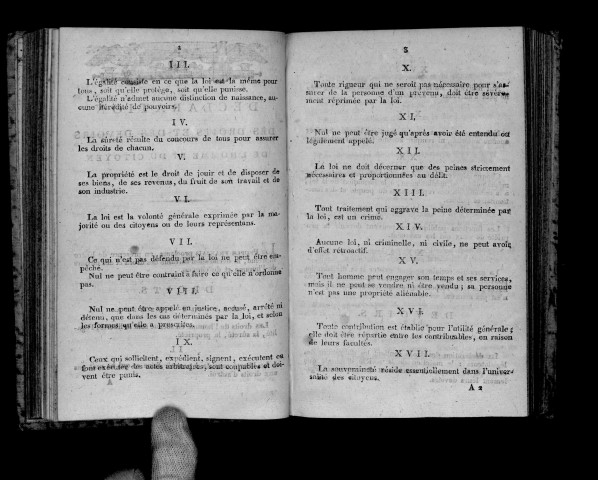 2
III.
L'égalité consiste en ce que la loi est la même pour
tous, soit qu'elle protége, soit qu'elle punisse.
L'égalité n'admet aucune distinction de naissance, au-
cune hérédité de pouvoirs.
IV.
La sûreté résulte du concours de tous pour assurer
les droits de chacun.
V.
La propriété est le droit de jouir et de disposer de
ses biens, de ses revenus, du fruit de son travail et de
son industrie.
VI.
La loi est la volonté générale exprimée par la ma-
jorité ou des citoyens ou de leurs représentans.
VII.
Ce qui n'est pas défendu par la loi ne peut être em-
pêché.
Nul ne peut être contraint à faire ce qu'elle n'ordonne
pas.
VIII.
Nul ne peut être appelé en justice, accusé, arrêté ni
détenu, que dans les cas déterminés par la loi, et selon
les formes qu'elle a prescrites.
IX.
Ceux qui sollicitent, expédient, signent, exécutent ou
font exécuter des actes arbitraires, sont coupables et doi-
vent être punis.
3
X.
Toute rigueur qui ne seroit pas nécessaire pour s'as-
surer de la personne d'un prévenu, doit être sévère-
ment réprimée par la loi.
XI.
Nul ne peut être jugé qu'après avoir été entendu ou
légalement appelé.
XII.
La loi ne doit décerner que des peines strictement
nécessaires et proportionnées au délit.
XIII.
Tout traitement qui aggrave la peine déterminée par
la loi, est un crime.
XIV.
Aucune loi, ni criminelle, ni civile, ne peut avoir
d'effet rétroactif.
XV.
Tout homme peut engager son temps et ses services,
mais il ne peut se vendre ni être vendu ; sa personne
n'est pas une propriété aliénable.
XVI.
Toute contribution est établie pour l'utilité générale ;
elle doit être répartie entre les contribuables, en raison
de leurs facultés.
XVII.
La souveraineté réside essentiellement dans l'univer-
salité des citoyens.
A 2